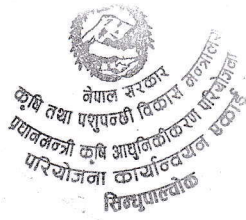 नेपाल सरकार
कृषि तथा पशुपन्छी विकास मन्त्रालय
प्रधानमन्त्री कृषि आधुनिकीकरण परियोजना
परियोजना कार्यान्वयन एकाई
सिन्धुपाल्चोक